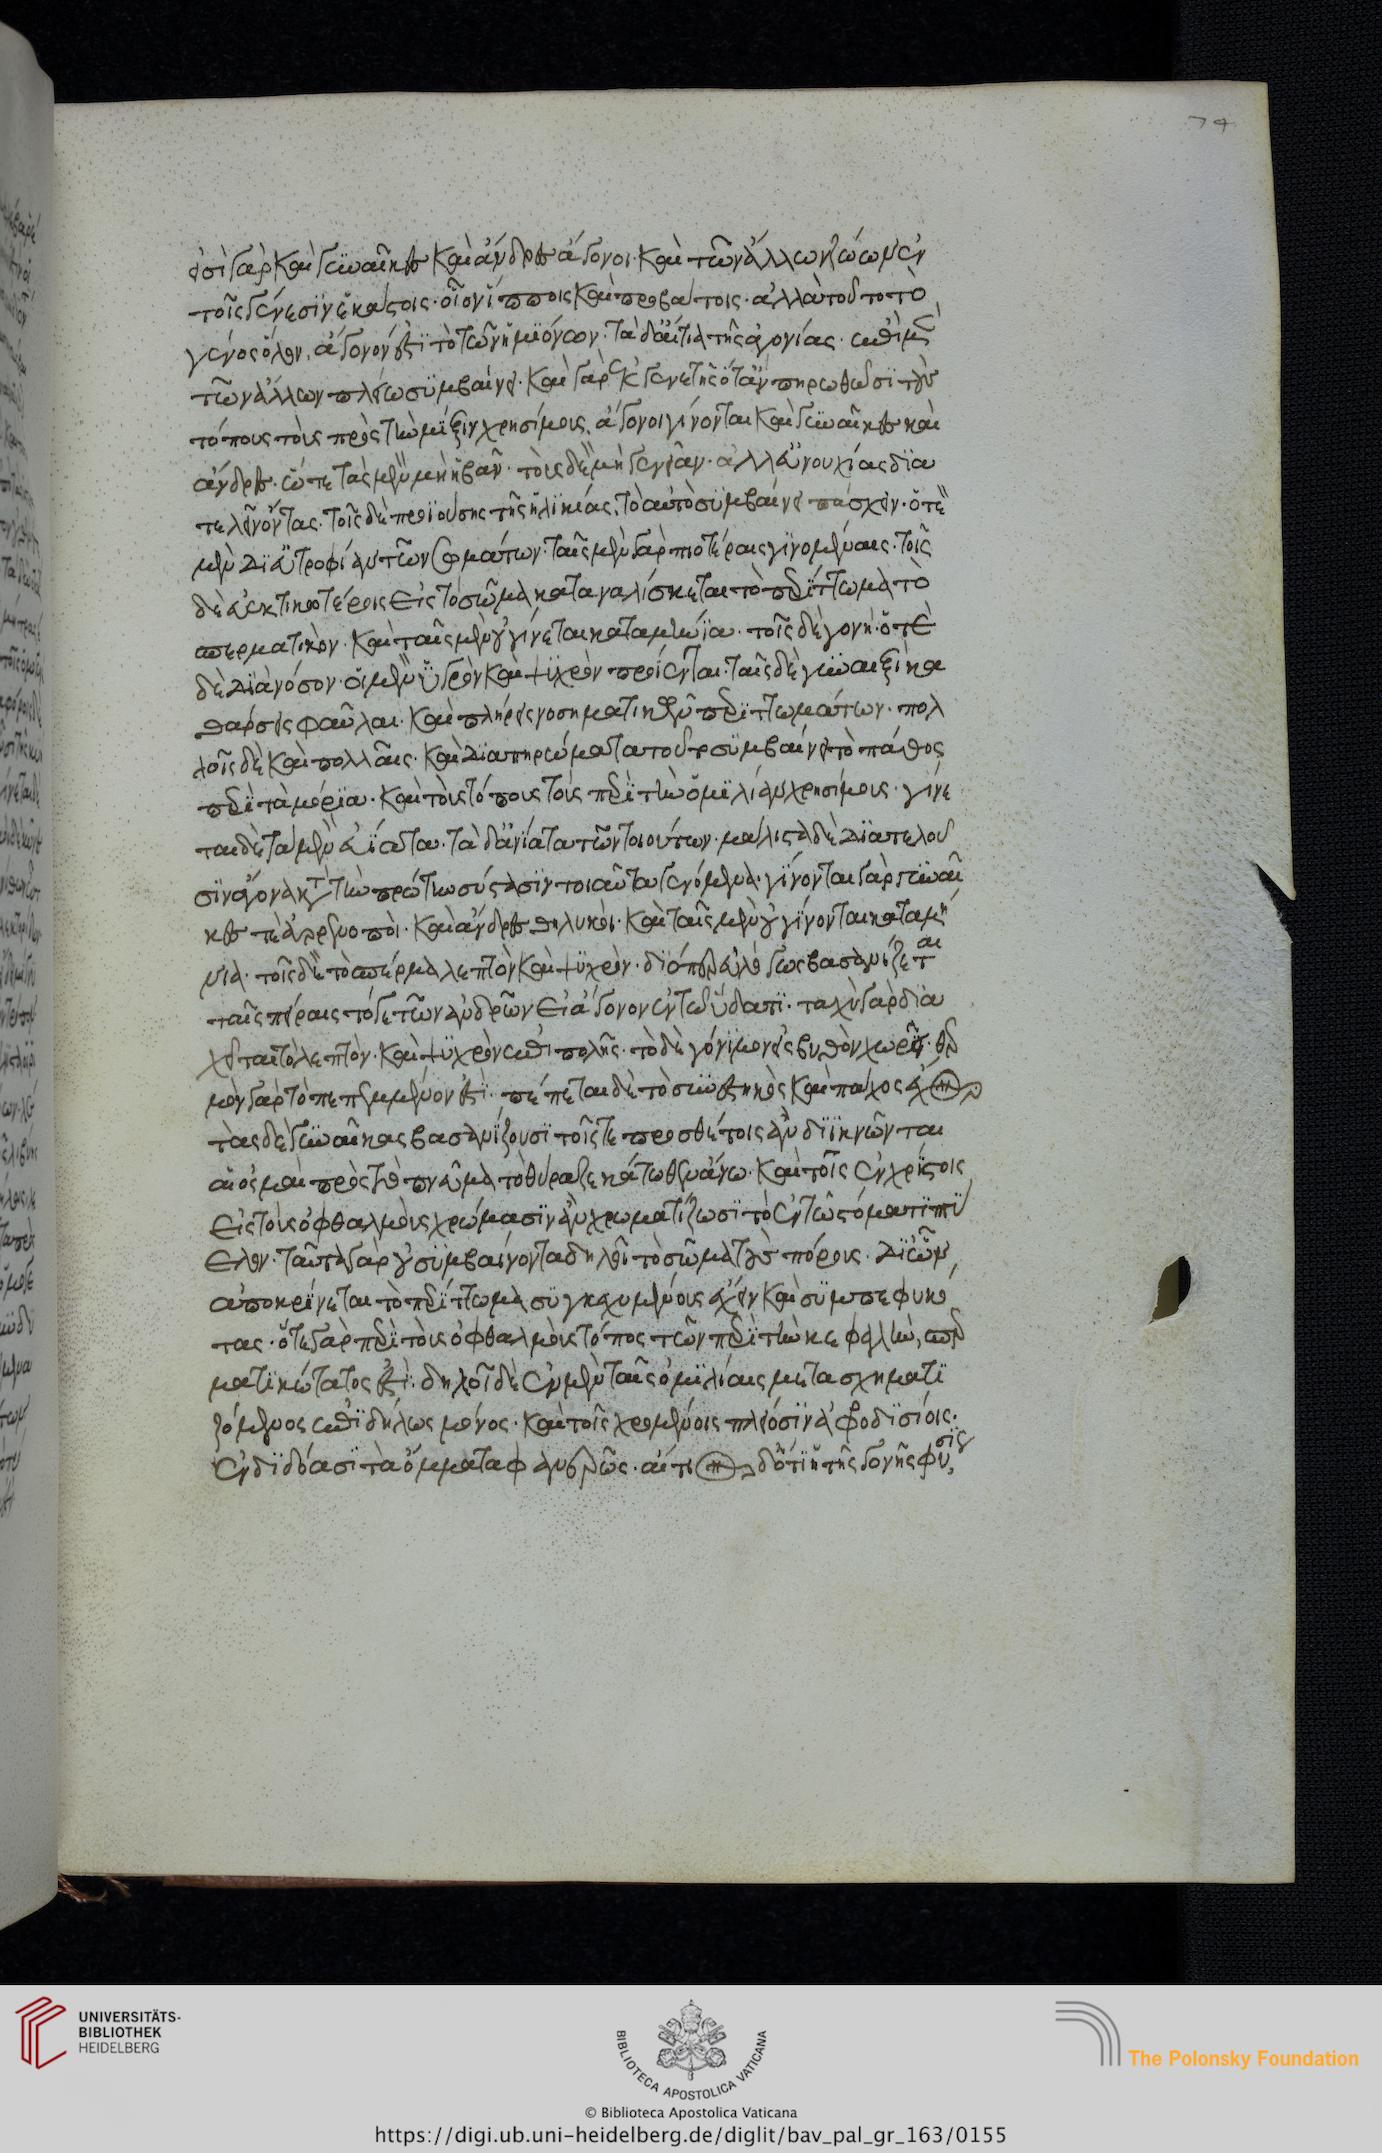 74
εἰσὶ γὰρ καὶ γυναῖκες καὶ ἄνδρες ἄγονοι· καὶ τῶν ἄλλων ζώων ἐν
τοῖς γένεσιν ἑκάστοις· οἷον ἵπποις καὶ προβάτοις· ἀλλὰ τοῦτο τὸ
γένος ὅλον, ἄγονόν ἐστι τὸ τῶν ἡμιόνων· τὰ δ' αἴτια τῆς ἀγονίας· ἐπὶ μὲν
τῶν ἄλλων πλείω συμβαίνει· καὶ γὰρ ἐκ γενετῆς ὅταν πηρωθῶσι τοὺς
τόπους τοὺς πρὸς τὴν μίξιν χρησίμους, ἄγονοι γίνονται καὶ γυναῖκες καὶ
ἄνδρες· ὥστε τὰς μὲν μὴ ἡβᾶν· τοὺς δὲ μὴ γενειᾶν· ἀλλ' εὐνουχίας δια
τελεῖν ὄντας· τοῖς δὲ προϊούσης τῆς ἡλικίας, τὸ αὐτὸ συμβαίνει πάσχειν· ὁτὲ
μὲν δι' εὐτροφίαν τῶν σωμάτων· ταῖς μὲν γὰρ πιοτέραις γινομέναις· τοῖς
δὲ εὐεκτικωτέροις εἰς τὸ σῶμα καταναλίσκεται τὸ περίττωμα τὸ
σπερματικόν· καὶ ταῖς μὲν οὐ γίνεται καταμήνια· τοῖς δὲ γονή· ὁτὲ
δὲ διὰ νόσον· οἱ μὲν ὑγρὸν καὶ ψυχρὸν προΐενται· ταῖς δὲ γυναιξὶ κα
θάρσεις φαῦλαι· καὶ πλήρεις νοσηματικῶν περιττωμάτων· πολ
λοῖς δὲ καὶ πολλαῖς· καὶ διὰ πηρώματα τοῦτο συμβαίνει τὸ πάθος
περὶ τὰ μόρια· καὶ τοὺς τόπους τοὺς περὶ τὴν ὁμιλίαν χρησίμους· γίνε
ται δὲ τὰ μὲν ἰατά· τὰ δ' ἀνίατα τῶν τοιούτων· μάλιστα δὲ διατελοῦ
σιν ἄγονα κατὰ τὴν πρώτην σύστασιν τοιαῦτα γενόμενα· γίνονται γὰρ γυναῖ
κές τε ἀρρενωποί· καὶ ἄνδρες θηλυκοί· καὶ ταῖς μὲν οὐ γίνονται καταμή
νια· τοῖς δὲ τὸ σπέρμα λεπτὸν καὶ ψυχρόν· διόπερ εὐλόγως βασανίζεται
ταῖς πείραις τό γε τῶν ἀνδρῶν εἰ ἄγονον ἐν τῷ ὕδατι· ταχὺ γὰρ δια
χεῖται τὸ λεπτὸν· καὶ ψυχρὸν ἐπιπολῆς· τὸ δὲ γόνιμον εἰς βυθὸν χωρεῖ· θερ
μὸν γὰρ τὸ πεπεμμένον ἐστί· πέπεπται δὲ τὸ συνεστηκὸς καὶ πάχος ἔχον
τὰς δὲ γυναῖκας βασανίζουσι τοῖς τε προσθέτοις ἐὰν διϊκνῶνται
αἱ ὀσμαὶ πρὸς τὸ πνεῦμα τὸ θύραζε κάτωθεν ἄνω· καὶ τοῖς ἐγχρίστοις
εἰς τοὺς ὀφθαλμοὺς χρώμασιν ἂν χρωματίζωσι τὸ ἐν τῷ στόματι πτύ
ελον· ταῦτα γὰρ οὐ συμβαίνοντα δηλοῖ τὸ σῶμα τοὺς πόρους· δι' ὧν
ἀποκρίνεται τὸ περίττωμα συγκεχυμένους ἔχειν καὶ συμπεφυκό
τας· ὅ τε γὰρ περὶ τοὺς ὀφθαλμοὺς τόπος τῶν περὶ τὴν κεφαλὴν, σπερ
ματικώτατός ἐστι· δηλοῖ δὲ ἐν μὲν ταῖς ὁμιλίαις μετασχηματι
ζόμενος ἐπιδήλως μόνος· καὶ τοῖς χρωμένοις πλείοσιν ἀφροδισίοις·
ἐνδιδόασι τὰ ὄμματα φανερῶς· αἴτιον δ' ὅτι ἡ τῆς γονῆς φύσις
UNIVERSITÄTS-
BIBLIOTHEK
HEIDELBERG
BIBLIOTECA APOSTOLICA VATICANA
The Polonsky Foundation
© Biblioteca Apostolica Vaticana
https://digi.ub.uni-heidelberg.de/diglit/bav_pal_gr_163/0155